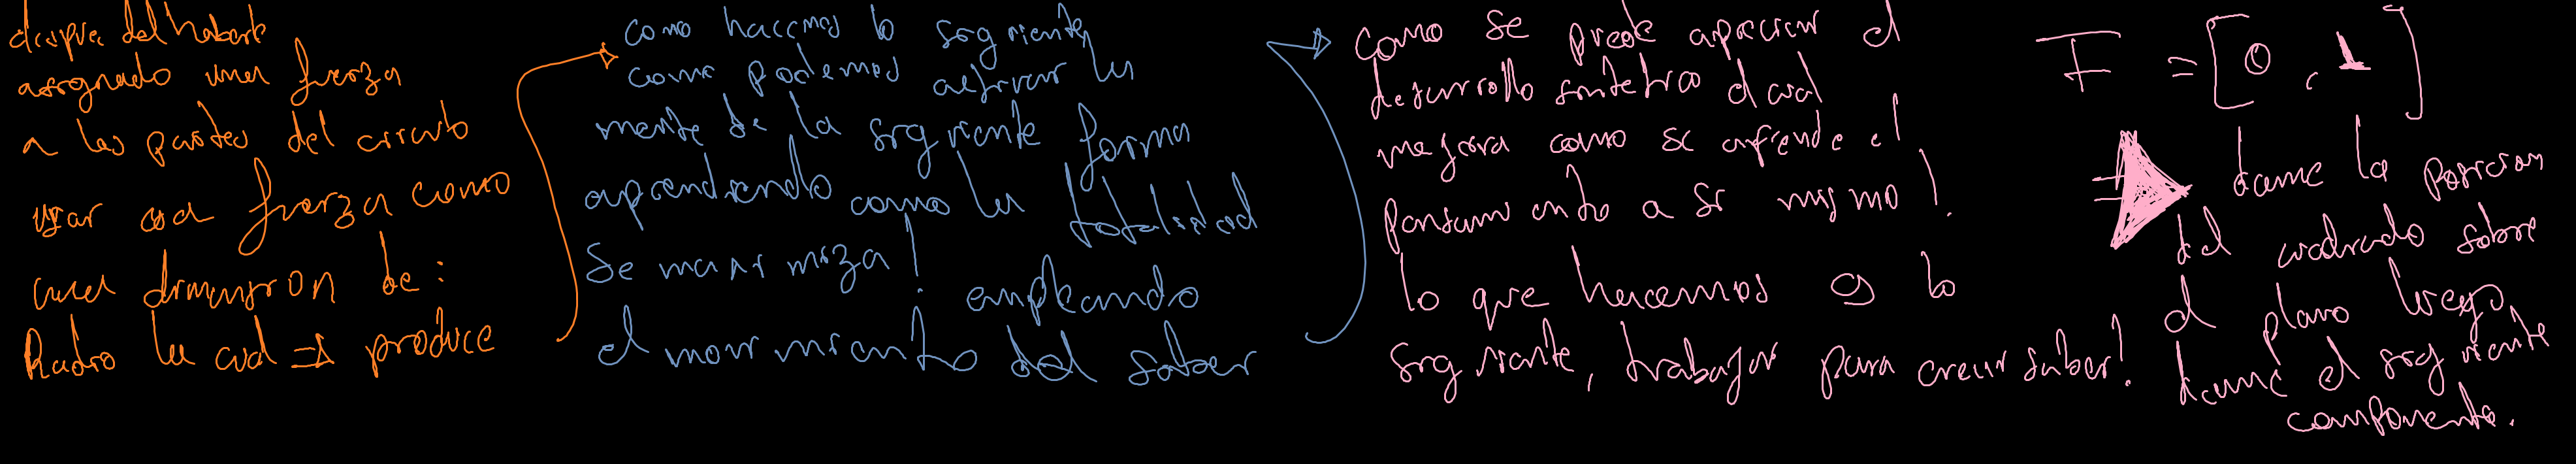 despues del haberte
asignado una fuerza
a las partes del circulo
usar cad fuerza como
una dimension de:
Radio la cual ⇒ produce
como hacemos lo siguiente
como podemos activar la
mente de la siguiente forma
aprendiendo como la totalidad
se maximiza! empleando
el movimiento del saber
como se puede apreciar el
desarrollo sintetico el cual
mejora como se aprende el
pensamiento a si mismo!.
lo que hacemos es lo
siguiente, trabajar para crear saber!.
F = [0, 1]
dame la posicion
del cuadrado sobre
el plano luego
dame el siguiente
componente.